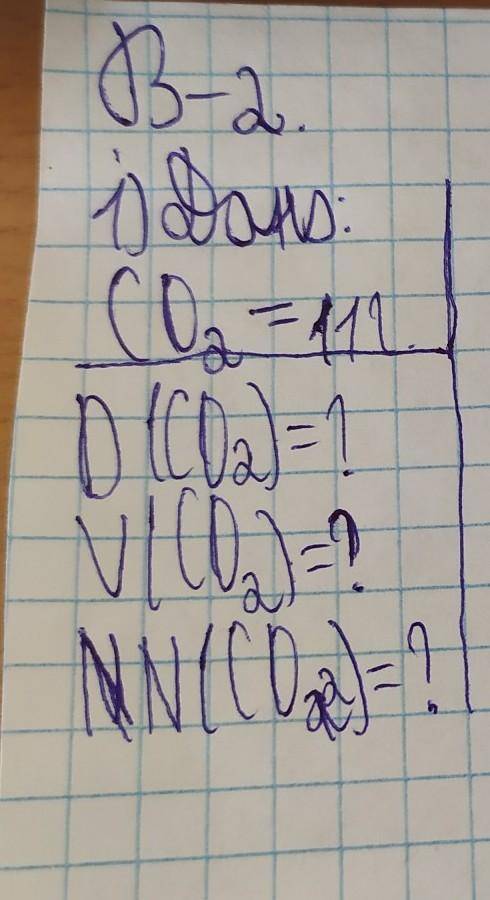 В-2.
1) Дано:
CO₂ = 11г.
D(CO₂)=?
V(CO₂)=?
N(CO₂)=?